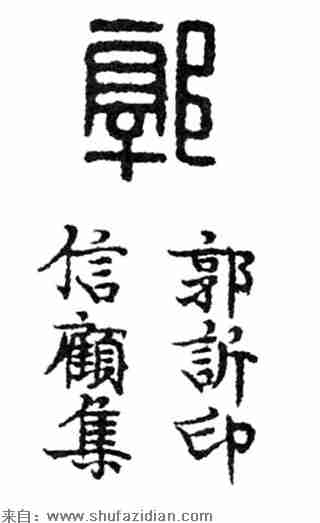 郭
郭訢印
信顧集
来自：www.shufazidian.com